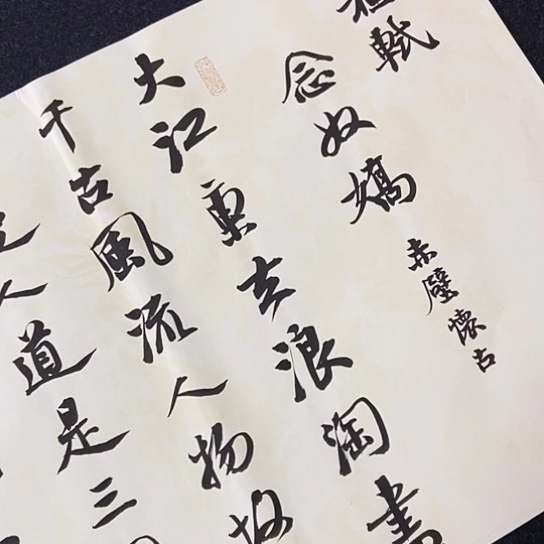 軾
念奴嬌 赤壁懷古
大江東去浪淘盡
千古風流人物故
人道是三